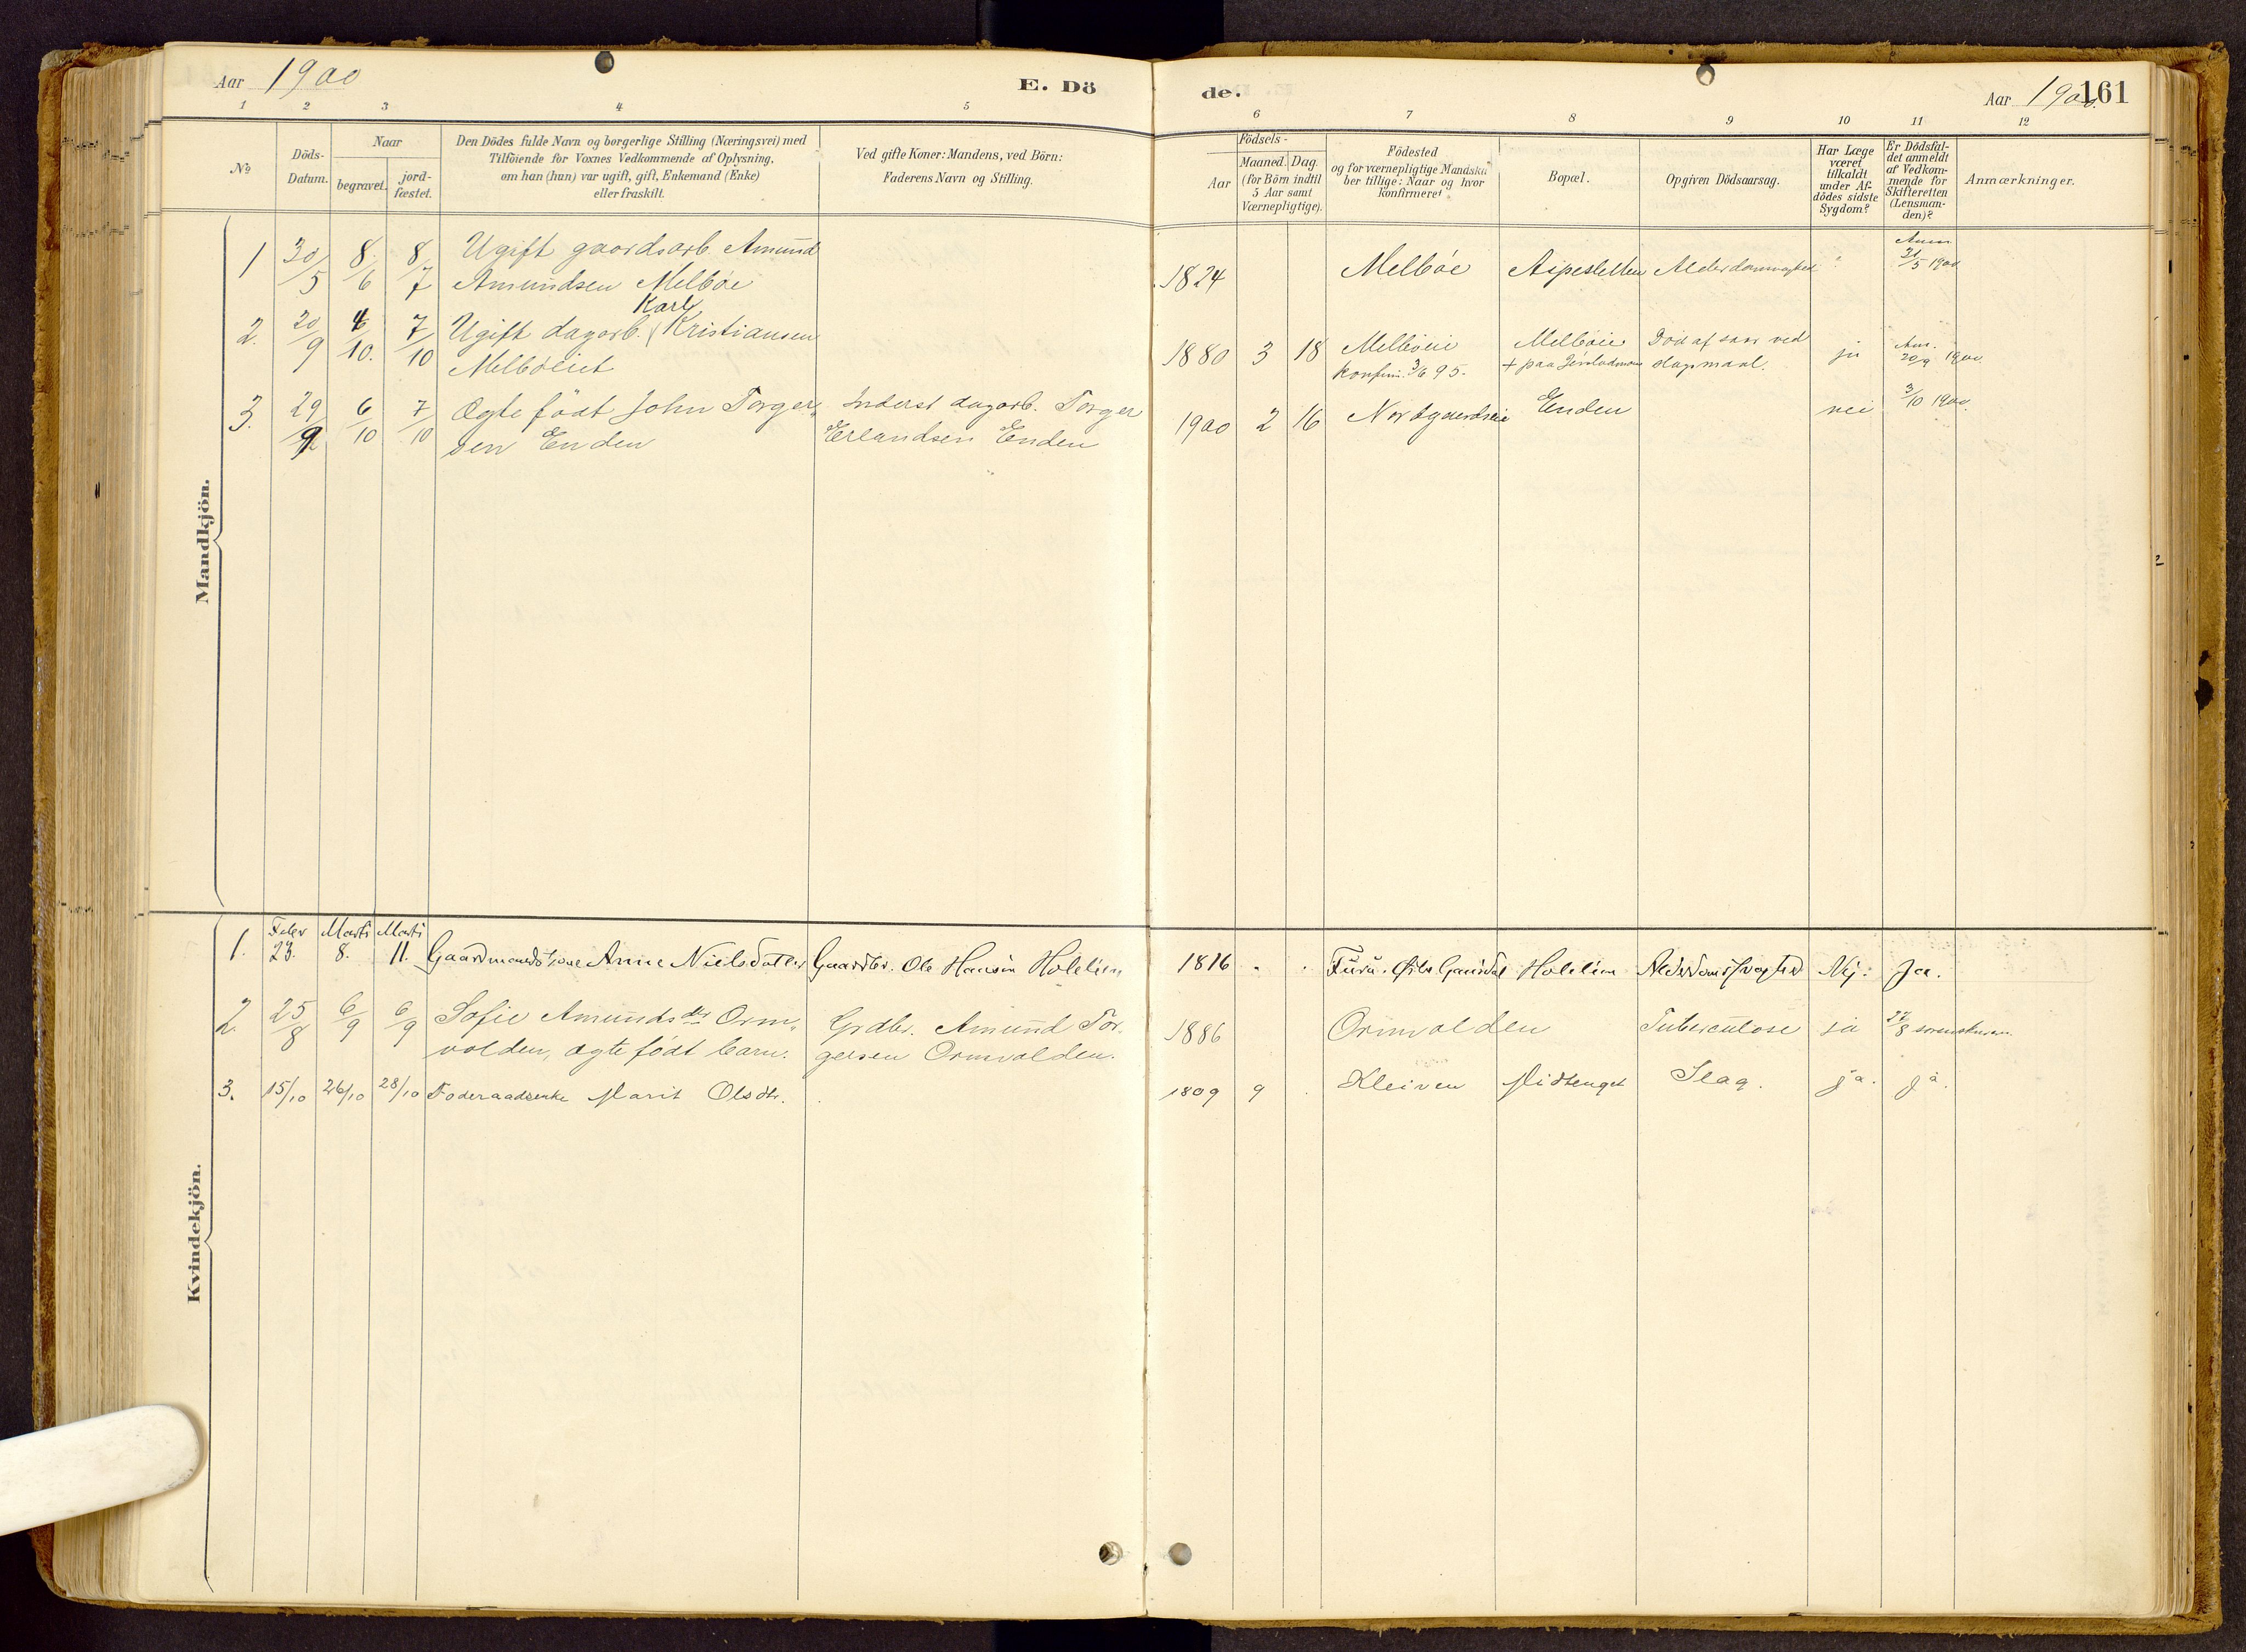 Aar 1900
E. Dö
de.
Aar 1900.
161
1 2 3 4 5 6 7 8 9 10 11 12
No
Döds-
Datum.
Naar
begravet.
jord-
fæstet.
Den Dödes fulde Navn og borgerlige Stilling (Næringsvei) med
Tilföiende for Voxnes Vedkommende af Oplysning,
om han (hun) var ugift, gift, Enkemand (Enke)
eller fraskilt.
Ved gifte Koner: Mandens, ved Börn:
Faderens Navn og Stilling.
Födsels-
Aar
Maaned. Dag.
(for Börn indtil
5 Aar samt
Værnepligtige).
Födested
og for værnepligtige Mandska-
ber tillige: Naar og hvor
konfirmeret
Bopæl.
Opgiven Dödsaarsag.
Har Læge
været
tilkaldt
under Af-
dödes sidste
Sygdom?
Er Dödsfal-
det anmeldt
af Vedkom-
mende for
Skifteretten
(Lensman-
den)?
Anmærkninger.
Mandkjön.
1 30/5 8/6 8/7 Ugift gaardsarb. Amund
Amundsen Melbøe
1824 Melbøe Aipesletten Alderdomsvaghed
Anm
31/5 1900
2. 20/9 6/10. 7/10 Ugift dagarb. Karl Kristiansen
Melbøeiet
1880 3 18 Melbøeie
konfirm. 3/6 95.
Melbøeie
+ paa
Død af saar ved
slagsmaal.
ja
Anm.
20/9 1900
3. 29/9 6/10 7/10 Ægte født John Torger-
sen Enden
Inderst dagarb. Torger
Erlandsen Enden
1900 2 16 Nordgaardseie Enden nei 3/10 1900.
Kvindekjön.
1. Febr 23. Marts 8. Marts 11. Gaardmandskone Anne Nielsdatter Gaardbr. Ole Hansen Holelien
1816 Furu. Østr. Gausdal Holelien Alderdomssvaghed Nej: Ja.
2. 25/8 6/9 6/9 Sofie Amundsdtr Orm-
volden, ægte født barn.
Grdbr. Amund Tor-
gersen Ormvolden.
1886 Ormvolden Tuberculose ja 27/8 sorenskriven.
3. 15/10 26/10 28/10 Foderaadsenke Marit Olsdtr.
1809 9 Kleiven Midtenget Slag. ja. ja.